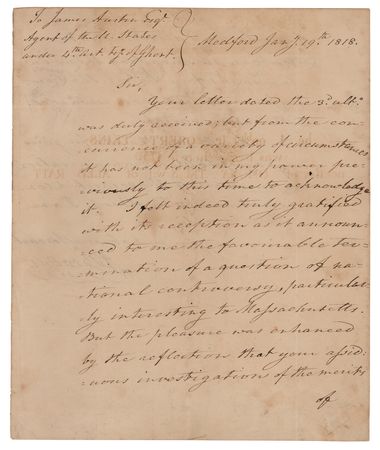 To James Austin Esqr.
Agent of the U. States
under 4th. Art. ty. of Ghent.
Medford Jany. 19th. 1818.
Sir,
Your letter dated the 3d. ulto.
was duly received; but from the con-
-currence of a variety of circumstances
it has not been in my power pre-
-viously to this time to acknowledge
it. I felt indeed truly gratified
with its reception as it announ-
-ced to me the favourable ter-
-mination of a question of na-
-tional controversy, particular-
-ly interesting to Massachusetts.
But the pleasure was enhanced
by the reflection that your assid-
-uous investigations of the merits
of